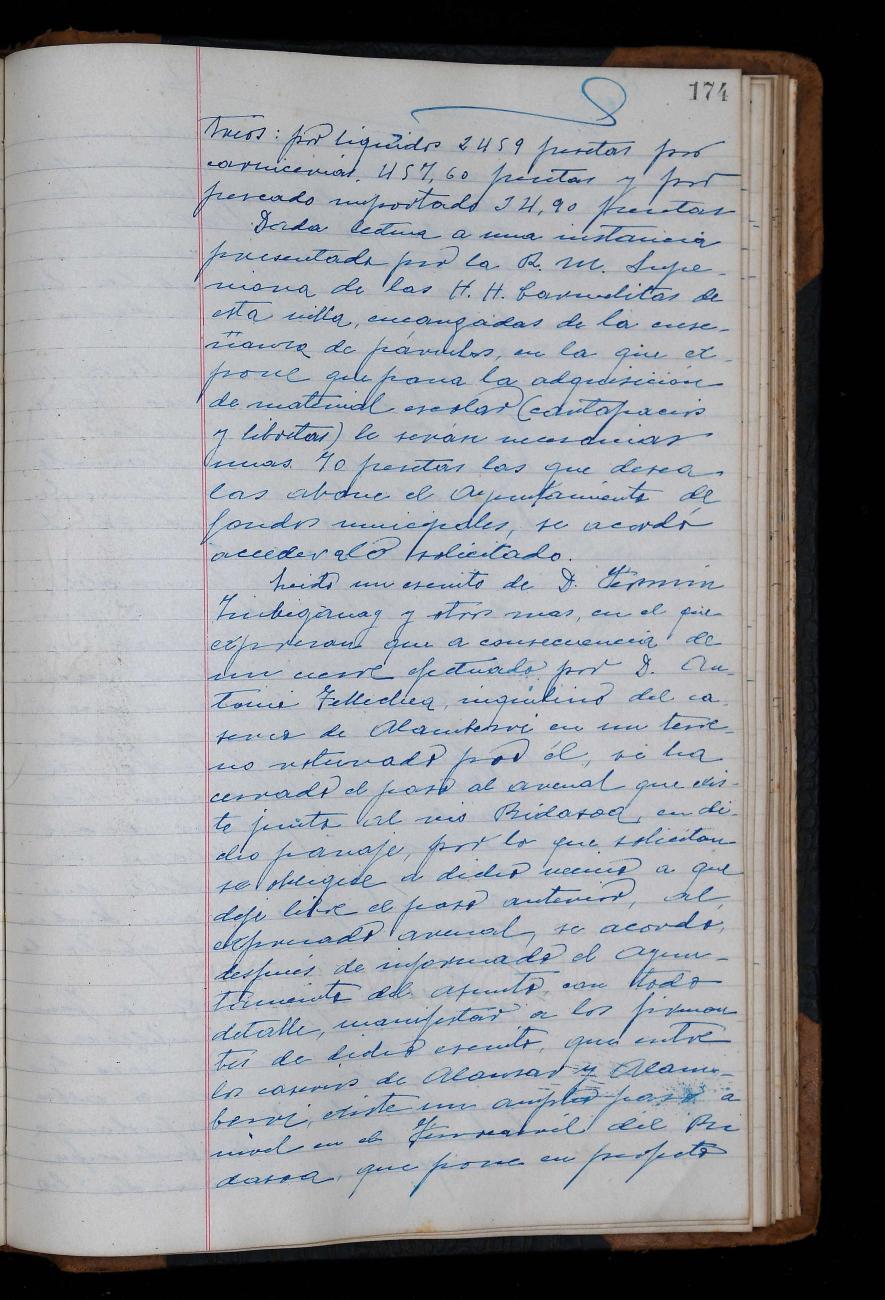 174
trios: por liquidos 2459 pesetas por
carnicerias, 457,60 pesetas y por
pescado importado 34,90 pesetas
Dada lectura a una instancia
presentada por la R. M. Supe-
riora de las H. H. Carmelitas de
esta villa, encargadas de la ense-
ñanza de párvulos, en la que ex-
pone que para la adquisición
de material escolar (cartapacios
y libretas) le serán necesarias
unas 70 pesetas las que desea
las abone el Ayuntamiento de
fondos municipales, se acordó
acceder a lo solicitado.
Leido un escrito de D. Fermin
y otros mas, en el que
expresan que a consecuencia de
un cierre efectuado por D. An-
tonio Tellechea, inquilino del ca-
serio de Alamberri en un terre-
no roturado por él, se ha
cerrado el paso al arenal que exis-
te junto al rio Bidasoa, en di-
cho paraje, por lo que solicitan
se obligue a dicho vecino a que
deje libre el paso anterior, al
expresado arenal, se acordó,
después de informado el Ayun-
tamiento del asunto con todo
detalle, manifestar a los firman
tes de dicho escrito, que entre
los caserios de Alansar y Alam-
berri, existe un amplio paso a
nivel en el Ferrocarril del Bi
dasoa, que pone en perfecto